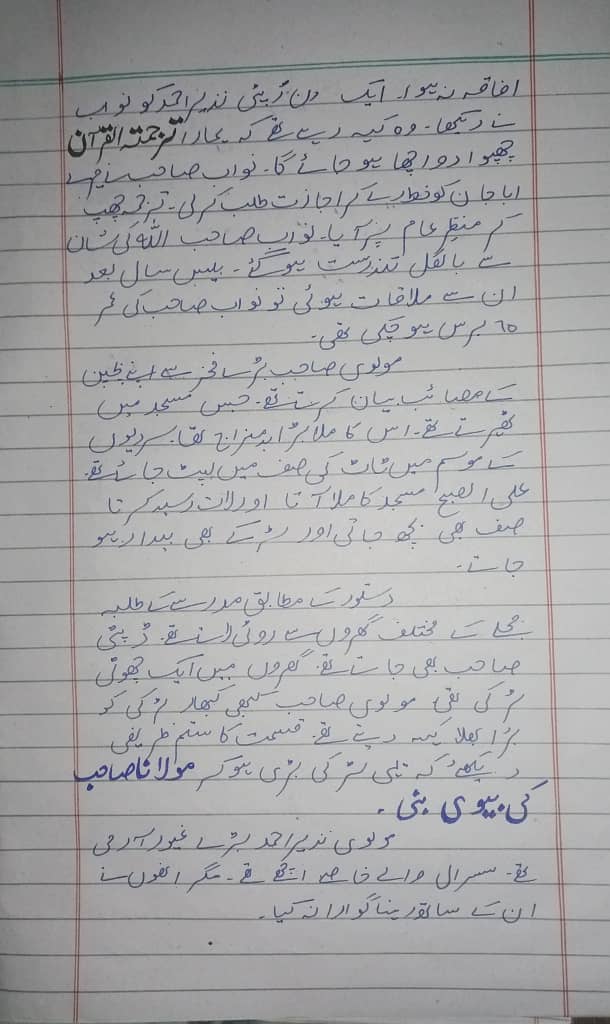 افاقہ نہ ہوا۔ ایک دن ڈپٹی نذیر احمد کو خواب
نے دیکھا۔ وہ کہہ رہے تھے کہ ہمارا ترجمتہ القرآن
چھپوا دو اچھا ہو جائے گا۔ نواب صاحب نے میرے
ابا جان کو خط لکھ کر اجازت طلب کر لی۔ ترجمہ چھپ
کر منظرِ عام پر آیا۔ نواب صاحب اللہ کی شان
سے بالکل تندرست ہو گئے۔ بیس سال بعد
ان سے ملاقات ہوئی تو نواب صاحب کی عمر
٦٥ برس ہو چکی تھی۔
مولوی صاحب بڑے فخر سے اپنے بچپن
کے مصائب بیان کرتے تھے۔ جس مسجد میں
ٹھہرتے تھے۔ اس کا ملا بڑا بد مزاج تھا۔ سردیوں
کے موسم میں ٹاٹ کی صف میں لپٹ جاتے تھے۔
علی الصبح مسجد کا ملا آتا اور لات رسید کرتا
صف بھی بچھ جاتی اور لڑکے بھی بیدار ہو
جاتے۔
دستور کے مطابق مدرسے کے طلبہ
محلے کے مختلف گھروں سے روٹی لاتے تھے۔ ڈپٹی
صاحب بھی جاتے تھے۔ گھروں میں ایک چھوٹی
لڑکی تھی۔ مولوی صاحب کبھی کبھار لڑکی کو
برا بھلا کہہ دیتے تھے۔ قسمت کا ستم ظریفی
دیکھئے کہ یہی لڑکی بڑی ہو کر مولانا صاحب
کی بیوی بنی۔
مولوی نذیر احمد بڑے غیور آدمی
تھے۔ سسرال والے خاصے اچھے تھے۔ مگر انھوں نے
ان کے ساتھ رہنا گوارا نہ کیا۔